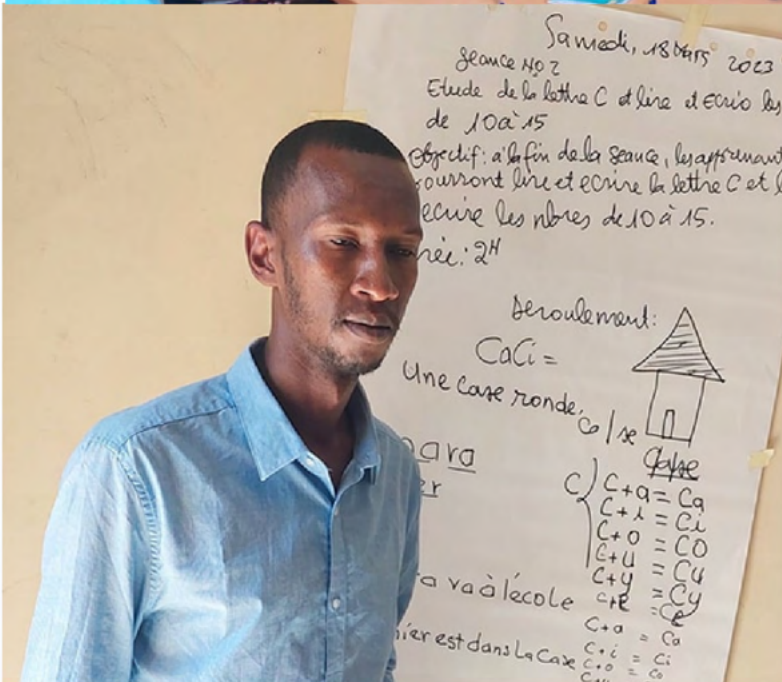 Samedi, 18 Mars 2023
Seance No 2
Etude de la lettre C et lire et ecrio les
de 10 à 15
Objectif: à la fin de la seance, les apprenant
ourront lire et ecrire la lettre C et l
ecrire les nbres de 10 à 15.
rée: 2H
Deroulement:
CaCi =
Une case ronde.
Ca/se
Case
ara
er
C
C+a = Ca
C+i = Ci
C+o = CO
C+u = Cu
C+y = Cy
C+e = Ce
a va à l'école
C+a = Ca
C+i = Ci
ier est dans La Case
C+o = Co